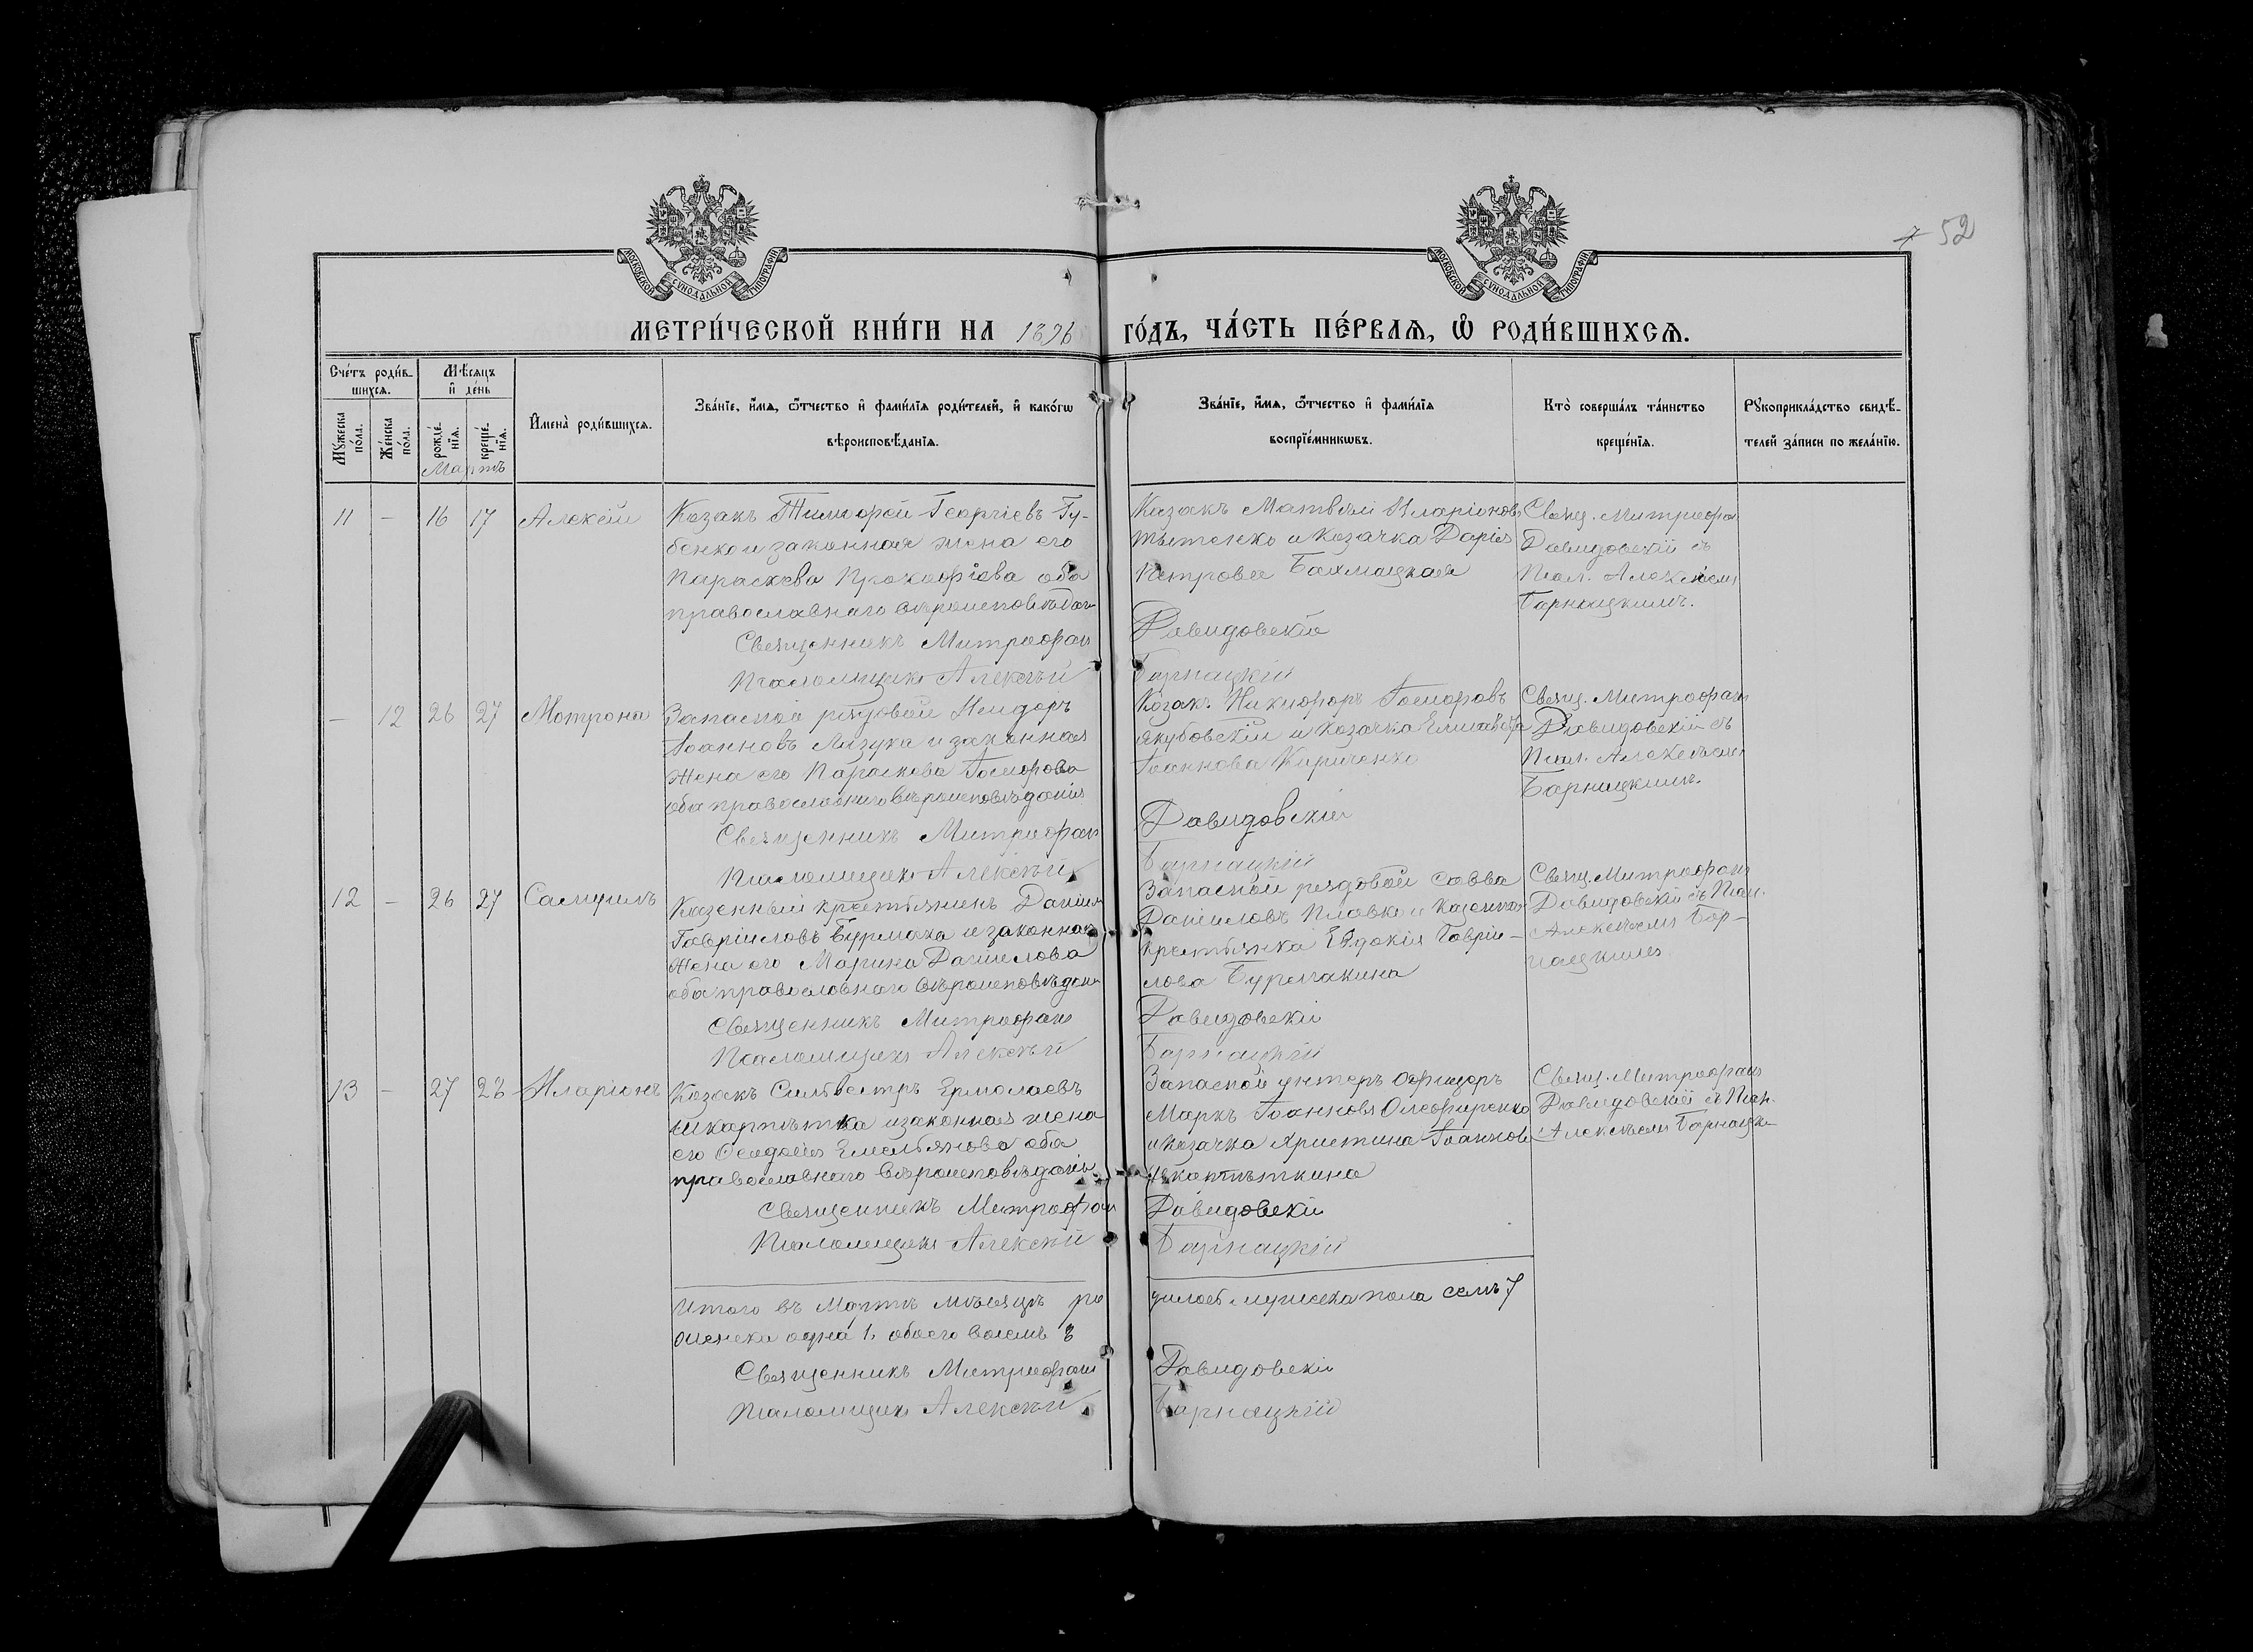 МОСКОВСКОЙ СѴНОДАЛЬНОЙ ТИПОГРАФІИ
МОСКОВСКОЙ СѴНОДАЛЬНОЙ ТИПОГРАФІИ
52
МЕТРИ́ЧЕСКОЙ КНИ́ГИ НА 1896 ГО́ДЪ, ЧА́СТЬ ПЕ́РВАѦ, Ѡ҆ РОДИ́ВШИХСѦ.
Сче́тъ роди́в-
шихсѧ.
Мѣ́сѧцъ
и҆ де́нь
Мꙋ́жеска
по́ла.
Же́нска
по́ла.
рожде́-
нїѧ.
креще́-
нїѧ.
И҆мена̀ роди́вшихсѧ.
Зва́нїе, и҆́мѧ, ѻ҆́тчество и҆ фами́лїѧ роди́телей, и҆ како́гѡ
вѣроисповѣ́данїѧ.
Зва́нїе, и҆́мѧ, ѻ҆́тчество и҆ фами́лїѧ
воспрїе́мникѡвъ.
Кто̀ соверша́лъ та́инство
креще́нїѧ.
Рꙋкоприкла́дство свидѣ́-
телей за́писи по жела́нїю.
Мартъ
11 — 16 17 Алексій
Козакъ Тимофей Георгіевъ Гу-
бенко и законная жена его
Параскева Прокофіева оба
православнаго вѣроисповѣдан
Священникъ Митрофан
Псаломщикъ Алексѣй
Козакъ Матвѣй Иларіоновъ
и козачка Дарія
Петрова Бахмацкая
Давидовскій
Барнацкій
Свящ. Митрофан
Давидовскій съ
Псал. Алексѣемъ
Барнацкимъ.
— 12 26 27 Мотрона
Запасной рядовой Исидоръ
Іоанновъ Лазука и законная
жена его Параскева Іосифова
оба православнаго вѣроисповѣданія
Священникъ Митрофан
Псаломщикъ Алексѣй
Козакъ Никифоръ Іосифовъ
Якубовскій и козачка Елисавета
Іоаннова Кириченко
Давидовскій
Барнацкій
Свящ. Митрофанъ
Давидовскій съ
Псал. Алексѣемъ
Барнацкимъ.
12 — 26 27 Самуилъ
Казенный крестьянинъ Даніил
Гавріиловъ Бурмака и законная
жена его Марина Даніилова
оба православнаго вѣроисповѣдан
Священникъ Митрофанъ
Псаломщикъ Алексѣй
Запасной рядовой Савва
Даніиловъ и казенная
крестьянка Евдокія Гавріи-
лова Бурмакина
Давидовскій
Барнацкій
Свящ. Митрофанъ
Давидовскій съ Псал.
Алексѣемъ Бар-
нацкимъ
13 — 27 28 Иларіонъ
Козакъ Сильвестръ Ермолаевъ
Шкарпѣтка и законная жена
его Ѳеодосія Емельянова оба
православнаго вѣроисповѣдан
Священникъ Митрофан
Псаломщикъ Алексѣй
Запасной унтеръ офицеръ
Маркъ Іоанновъ Олефиренко
и козачка Христина Іоаннова
Шкарпѣткина
Давидовскій
Барнацкій
Свящ. Митрофанъ
Давидовскій съ Псал.
Алексѣемъ Барнацки
Итого въ Мартѣ мѣсяцѣ ро дилось мужеска пола семь 7
женска одна 1, обоего восемь 8
Священникъ Митрофанъ Давидовскій
Псаломщикъ Алексѣй Барнацкій